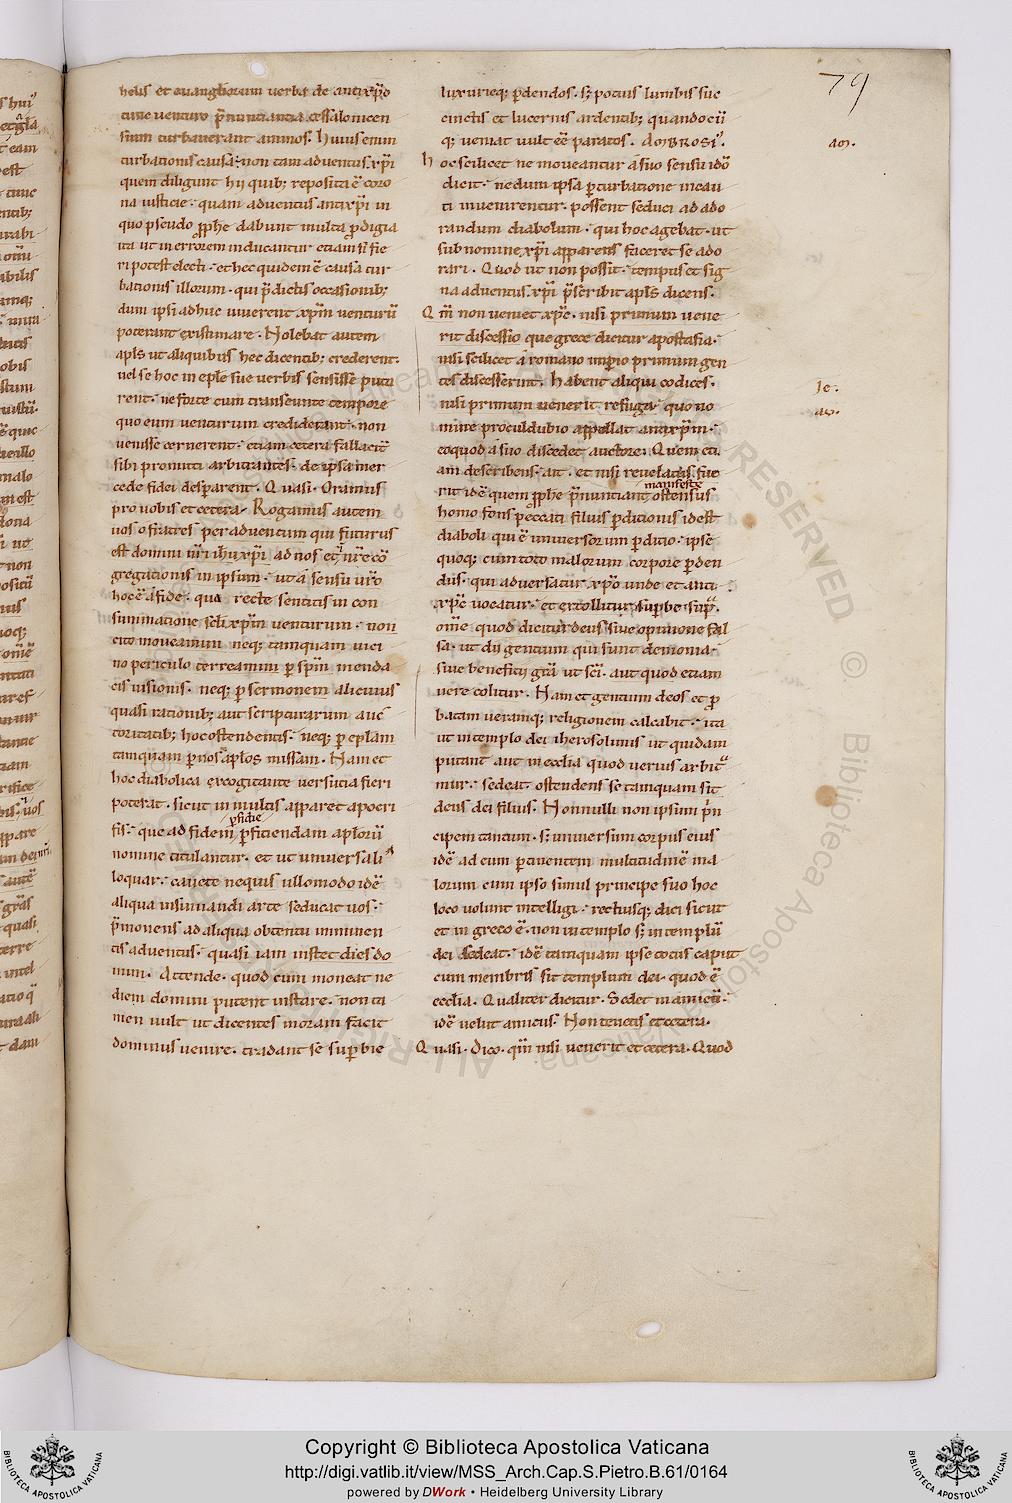 79
helis et euangliorum uerba de antixp̄o
tunc uenturo p̄nuntiantia tessalonicen
sium turbauerant animos. Huius enim
turbationis causa. non tam aduentus xp̄i
quem diligunt hii quib; reposita ē coro
na iusticie. quam aduentus antixp̄i in
quo pseudo ꝓphe dabunt multa ꝓdigia
ita ut in errorem inducantur etiam si fie
ri potest electi. et hec quidem ē causa tur
bationis illorum. qui p̄dictis occasionib;
dum ipsi adhuc uiuerent xp̄m uenturū
poterant existimare. Nolebat autem
apl̄s ut aliquibus hec dicentib; crederent.
uel se hoc in eplē sue uerbis sensisse puta
rent. ne forte cum transeunte tempore
quo eum uenturum crediderant. non
uenisse cernerent. etiam cetera fallaciť
sibi promitti arbitrantes. de ipsa mer
cede fidei desꝑarent. Quasi. Oramus
pro uobis et cetera. Rogamus autem
uos o fratres per aduentum qui futurus
est domini nr̄i ihu xp̄i ad nos et nr̄e cō
gregationis in ipsum. ut a sensu ur̄o
hoc ē a fide. qua recte sentitis in con
summatione scl̄i xp̄m uenturum. non
cito moueamini neq; tamquam uici
no periculo terreamini ꝑ spm̄ menda
cis uisionis. neq; ꝑ sermonem alicuius
quasi rationib; aut scripturarum auc
toritatib; hoc ostendentis. neq; ꝑ eplam
tamquam ꝑ nos aplos missam. Nam et
hoc diabolica excogitante uersutia fieri
poterat. sicut in multis apparet apocri
ꝑfidie
fis. que ad fidem ꝑficiendam aplorū
nomine titulantur. et ut uniuersali
loquar. cauete nequis ullomodo idē
aliqua insimandi arte seducat uos.
p̄monens ad aliqua obtentu imminen
tis aduentus. quasi iam instet dies do
mini. Attende. quod cum moneat ne
diem domini putent instare. non ta
men uult ut dicentes moram facit
dominus uenire. tradant se suꝑbie
luxurieq; ꝑdendos. s; potius lumbis suc
cinctis et lucernis ardentib; quandocū
q; ueniat uult eē paratos. AmBROSI'.
am.
Hoc scilicet ne moueantur a suo sensu idō
dicit. ne dum ipsa ꝑturbatione incau
ti inuenirentur. possent seduci ad ado
randum diabolum. qui hoc agebat. ut
sub nomine xp̄i apparens faceret se ado
rari. Quod ut non possit. tempus et sig
na aduentus xp̄i p̄scribit apl̄s dicens.
Qm̄ non ueniet xpc̄. nisi primum uene
rit discessio que grece dicitur apostasia.
nisi scilicet a romano imꝑio primum gen
tes discesserint. Habent aliqui codices.
Ie.
nisi primum uenerit refuga. quo no
au.
mine proculdubio appellat antixp̄m.
eo quod a suo discedet auctore. Quem eti
am describens. ait. et nisi reuelatus fue
manifeste
rit idē quem ꝓphe p̄nuntiant ostensus
homo fons peccati filius ꝑditionis id est
diaboli qui ē uniuersorum ꝑditio. ipse
quoq; cum toto malorum corpore ꝑden
dus. qui aduersatur xp̄o unde et anti
xpc̄ uocatur. et extollitur suꝑbe sup̄.
om̄e quod dicitur deus siue opinione fal
sa. ut dii gentium qui sunt demonia.
siue beneficii gr̄a ut sc̄i. aut quod etiam
uere colitur. Nam et gentium deos et ꝓ
batam ueramq; religionem calcabit. ita
ut in templo dei iherosolimis ut quidam
putant aut in ecclia quod uerius arbit
mur. sedeat. ostendens se tamquam sit
deus dei filius. Nonnulli non ipsum p̄n
cipem tantum. s; uniuersum corpus eius
idē ad eum ꝑtinentem multitudinē ma
lorum cum ipso simul principe suo hoc
loco uolunt intelligi. rectiusq; dici sicut
et in greco ē. non in templo s; in templū
dei sedeat. idē tamquam ipse totus caput
cum membris sit templum dei. quod ē
ecclia. Qualiter dicitur. Sedet in amicū.
idē uelut amicus. Non tenetis et cetera.
Quasi. Dico. qm̄ nisi uenerit et cetera. Quod
Copyright © Biblioteca Apostolica Vaticana
http://digi.vatlib.it/view/MSS_Arch.Cap.S.Pietro.B.61/0164
powered by DWork • Heidelberg University Library